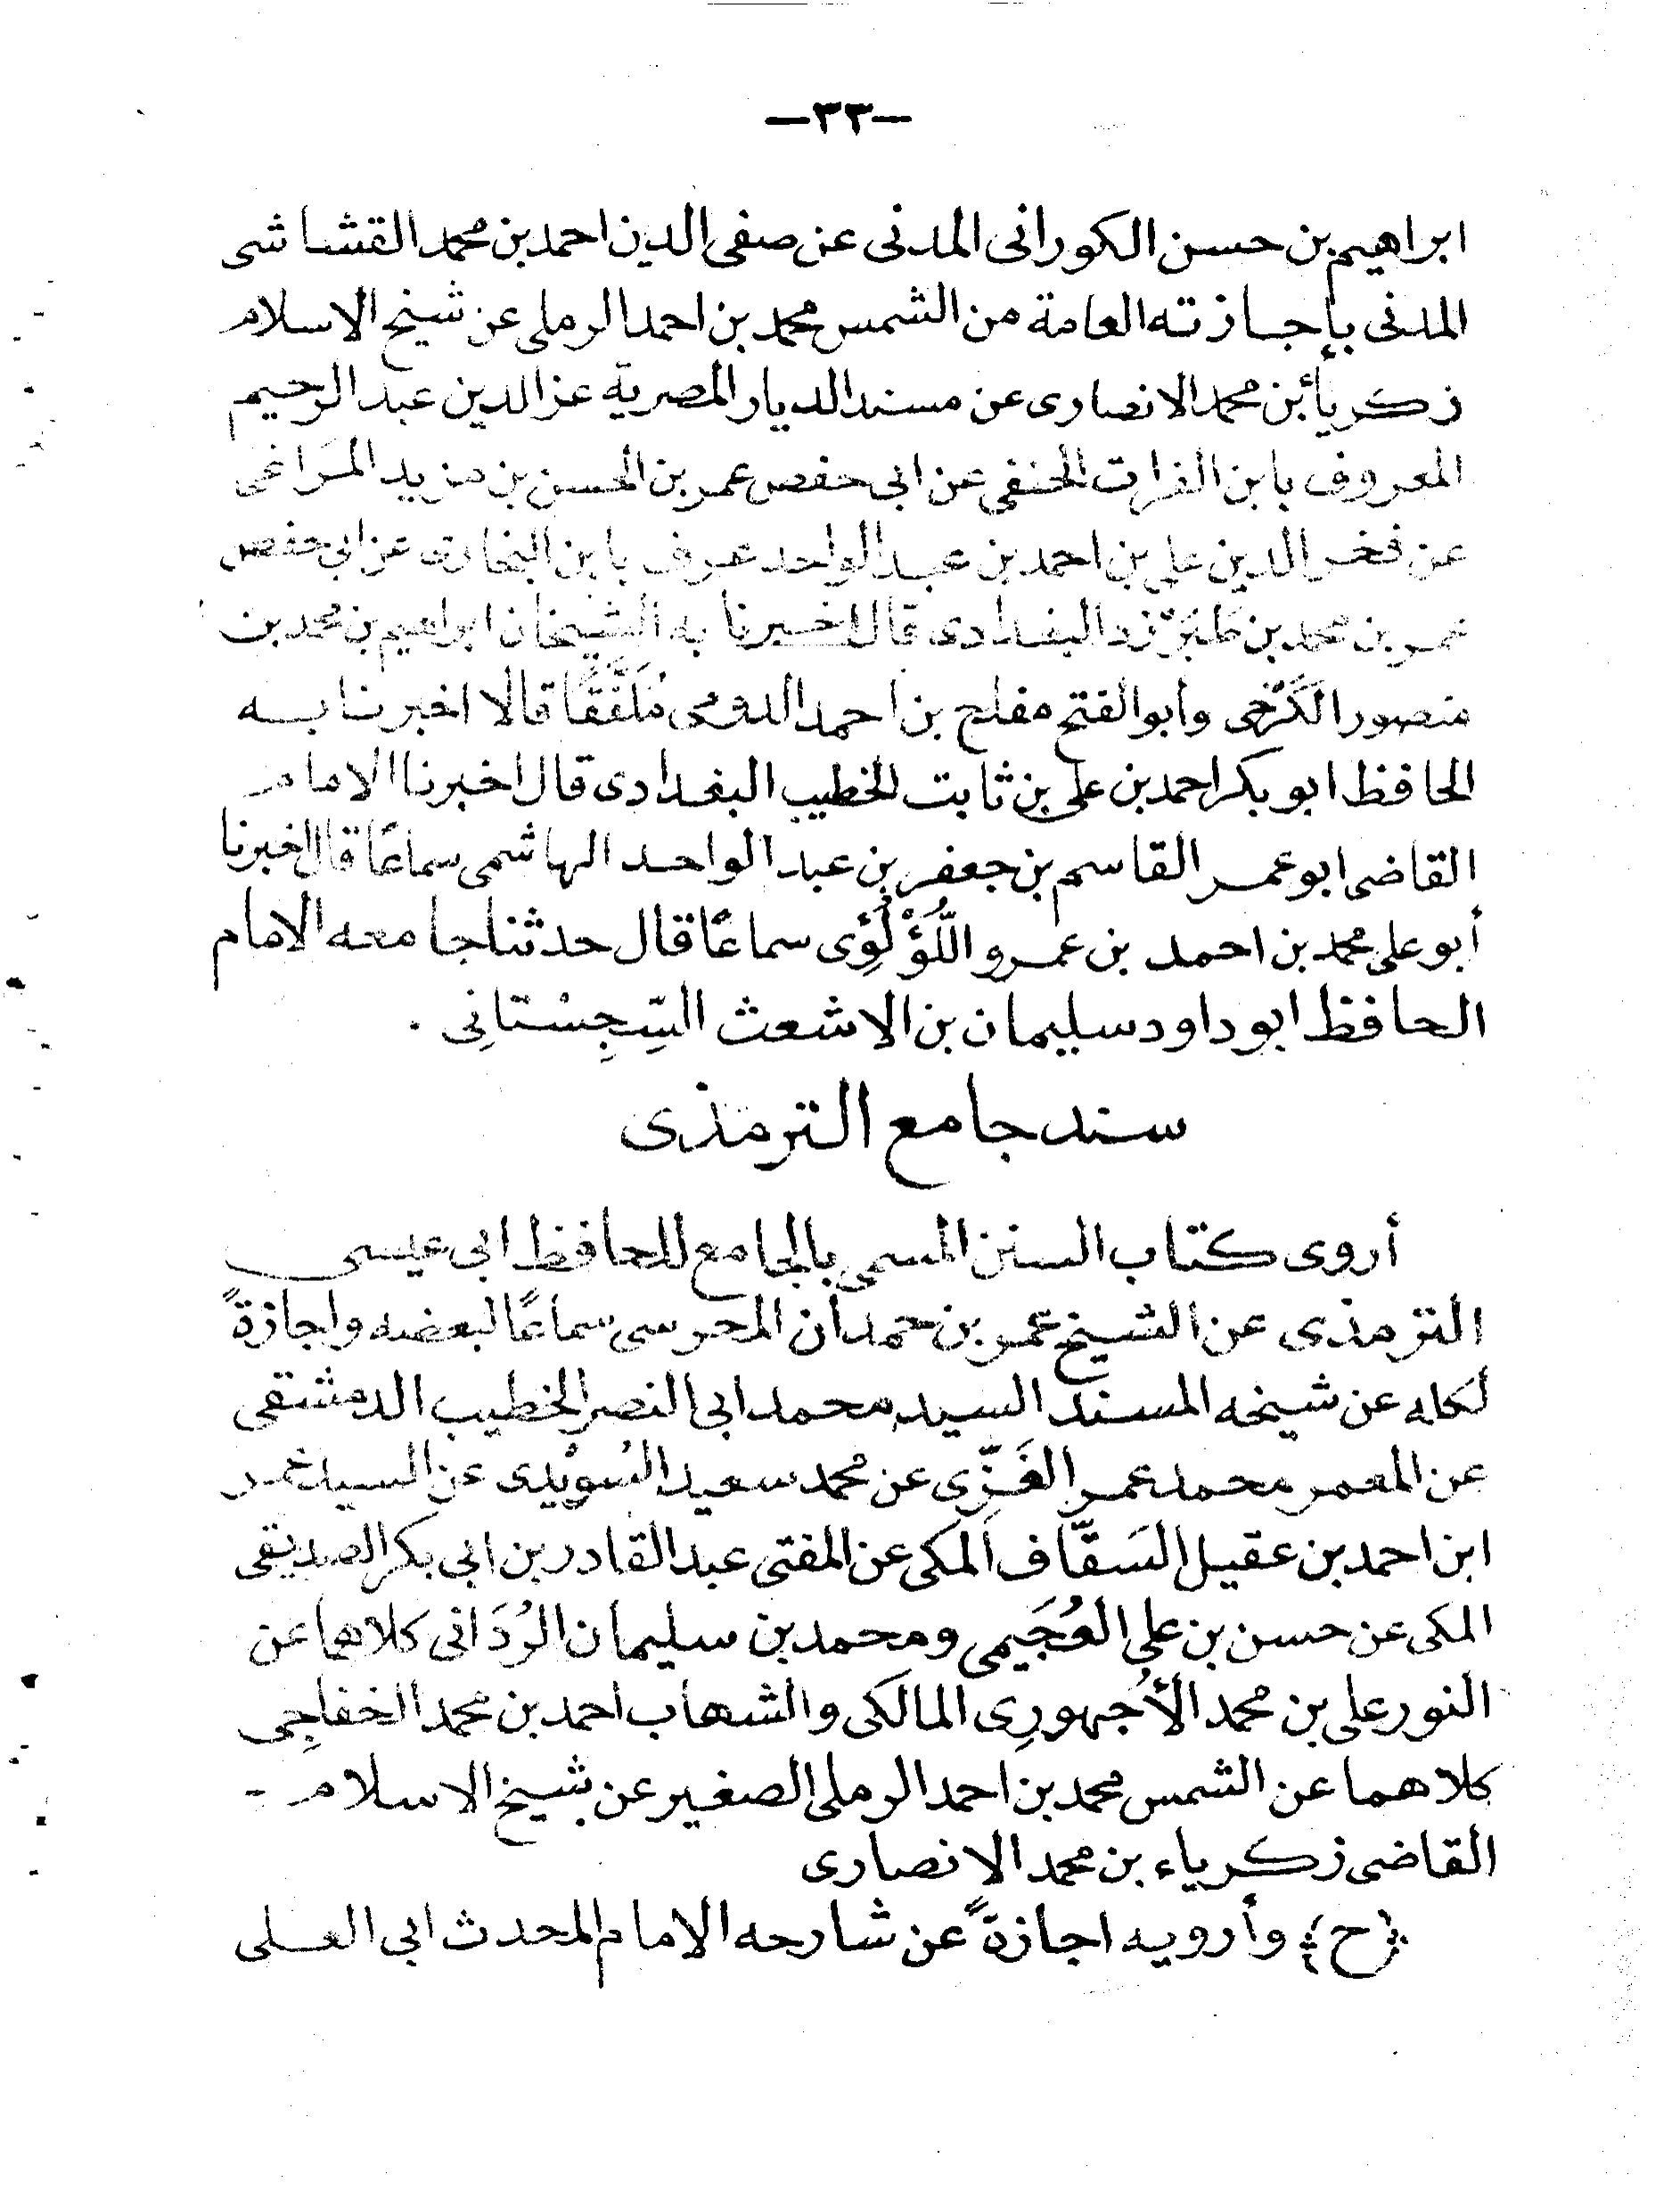 -٣٣-
ابراهيم بن حسن الكورانى المدنى عن صفى الدين احمد بن محمد القشاشى
المدنى بإجازته العامة من الشمس محمد بن احمد الرملى عن شيخ الاسلام
زكريا بن محمد الانصارى عن مسند الديار المصرية عز الدين عبد الرحيم
المعروف بابن الفرات الحنفى عن ابى حفص عمر بن الحسن بن مزيد المَراغى
عن فخر الدين على بن احمد بن عبد الواحد عرف بابن البخارى عن ابى حفص
عمر بن محمد بن طَبَرْزد البغدادى قال اخبرنا به الشيخان ابراهيم بن محمد بن
منصور الكَرْخى وأبو الفتح مفلح بن احمد الدومى مُلَفَّقًا قالا اخبرنا به
الحافظ ابو بكر احمد بن على بن ثابت الخطيب البغدادى قال اخبرنا الامام
القاضى ابو عمر القاسم بن جعفر بن عبد الواحد الهاشمى سماعًا قال اخبرنا
أبو على محمد بن احمد بن عمرو اللُّؤْلُؤِى سماعًا قال حدثنا جامعه الامام
الحافظ ابو داود سليمان بن الاشعث السِّجِسْتانِى .
سند جامع الترمذى
أروى كتاب السنن المسمى بالجامع للحافظ ابى عيسى
الترمذى عن الشيخ عمر بن حمدان المحرسى سماعًا لبعضه واجازةً
لكله عن شيخه المسند السيد محمد ابى النصر الخطيب الدمشقى
عن المعمر محمد عمر الغَزِّى عن محمد سعيد السُوَيْدى عن السيد عمر
ابن احمد بن عقيل السَقَّاف المكى عن المفتى عبد القادر بن ابى بكر الصديقى
المكى عن حسن بن على العُجَيمى ومحمد بن سليمان الرُدَانى كلاهما عن
النور على بن محمد الأُجهورِى المالكى والشهاب احمد بن محمد الخفاجِى
كلاهما عن الشمس محمد بن احمد الرملى الصغير عن شيخ الاسلام -
القاضى زكرياء بن محمد الانصارى
{ح} وأرويه اجازةً عن شارحه الامام المحدث ابى العلى